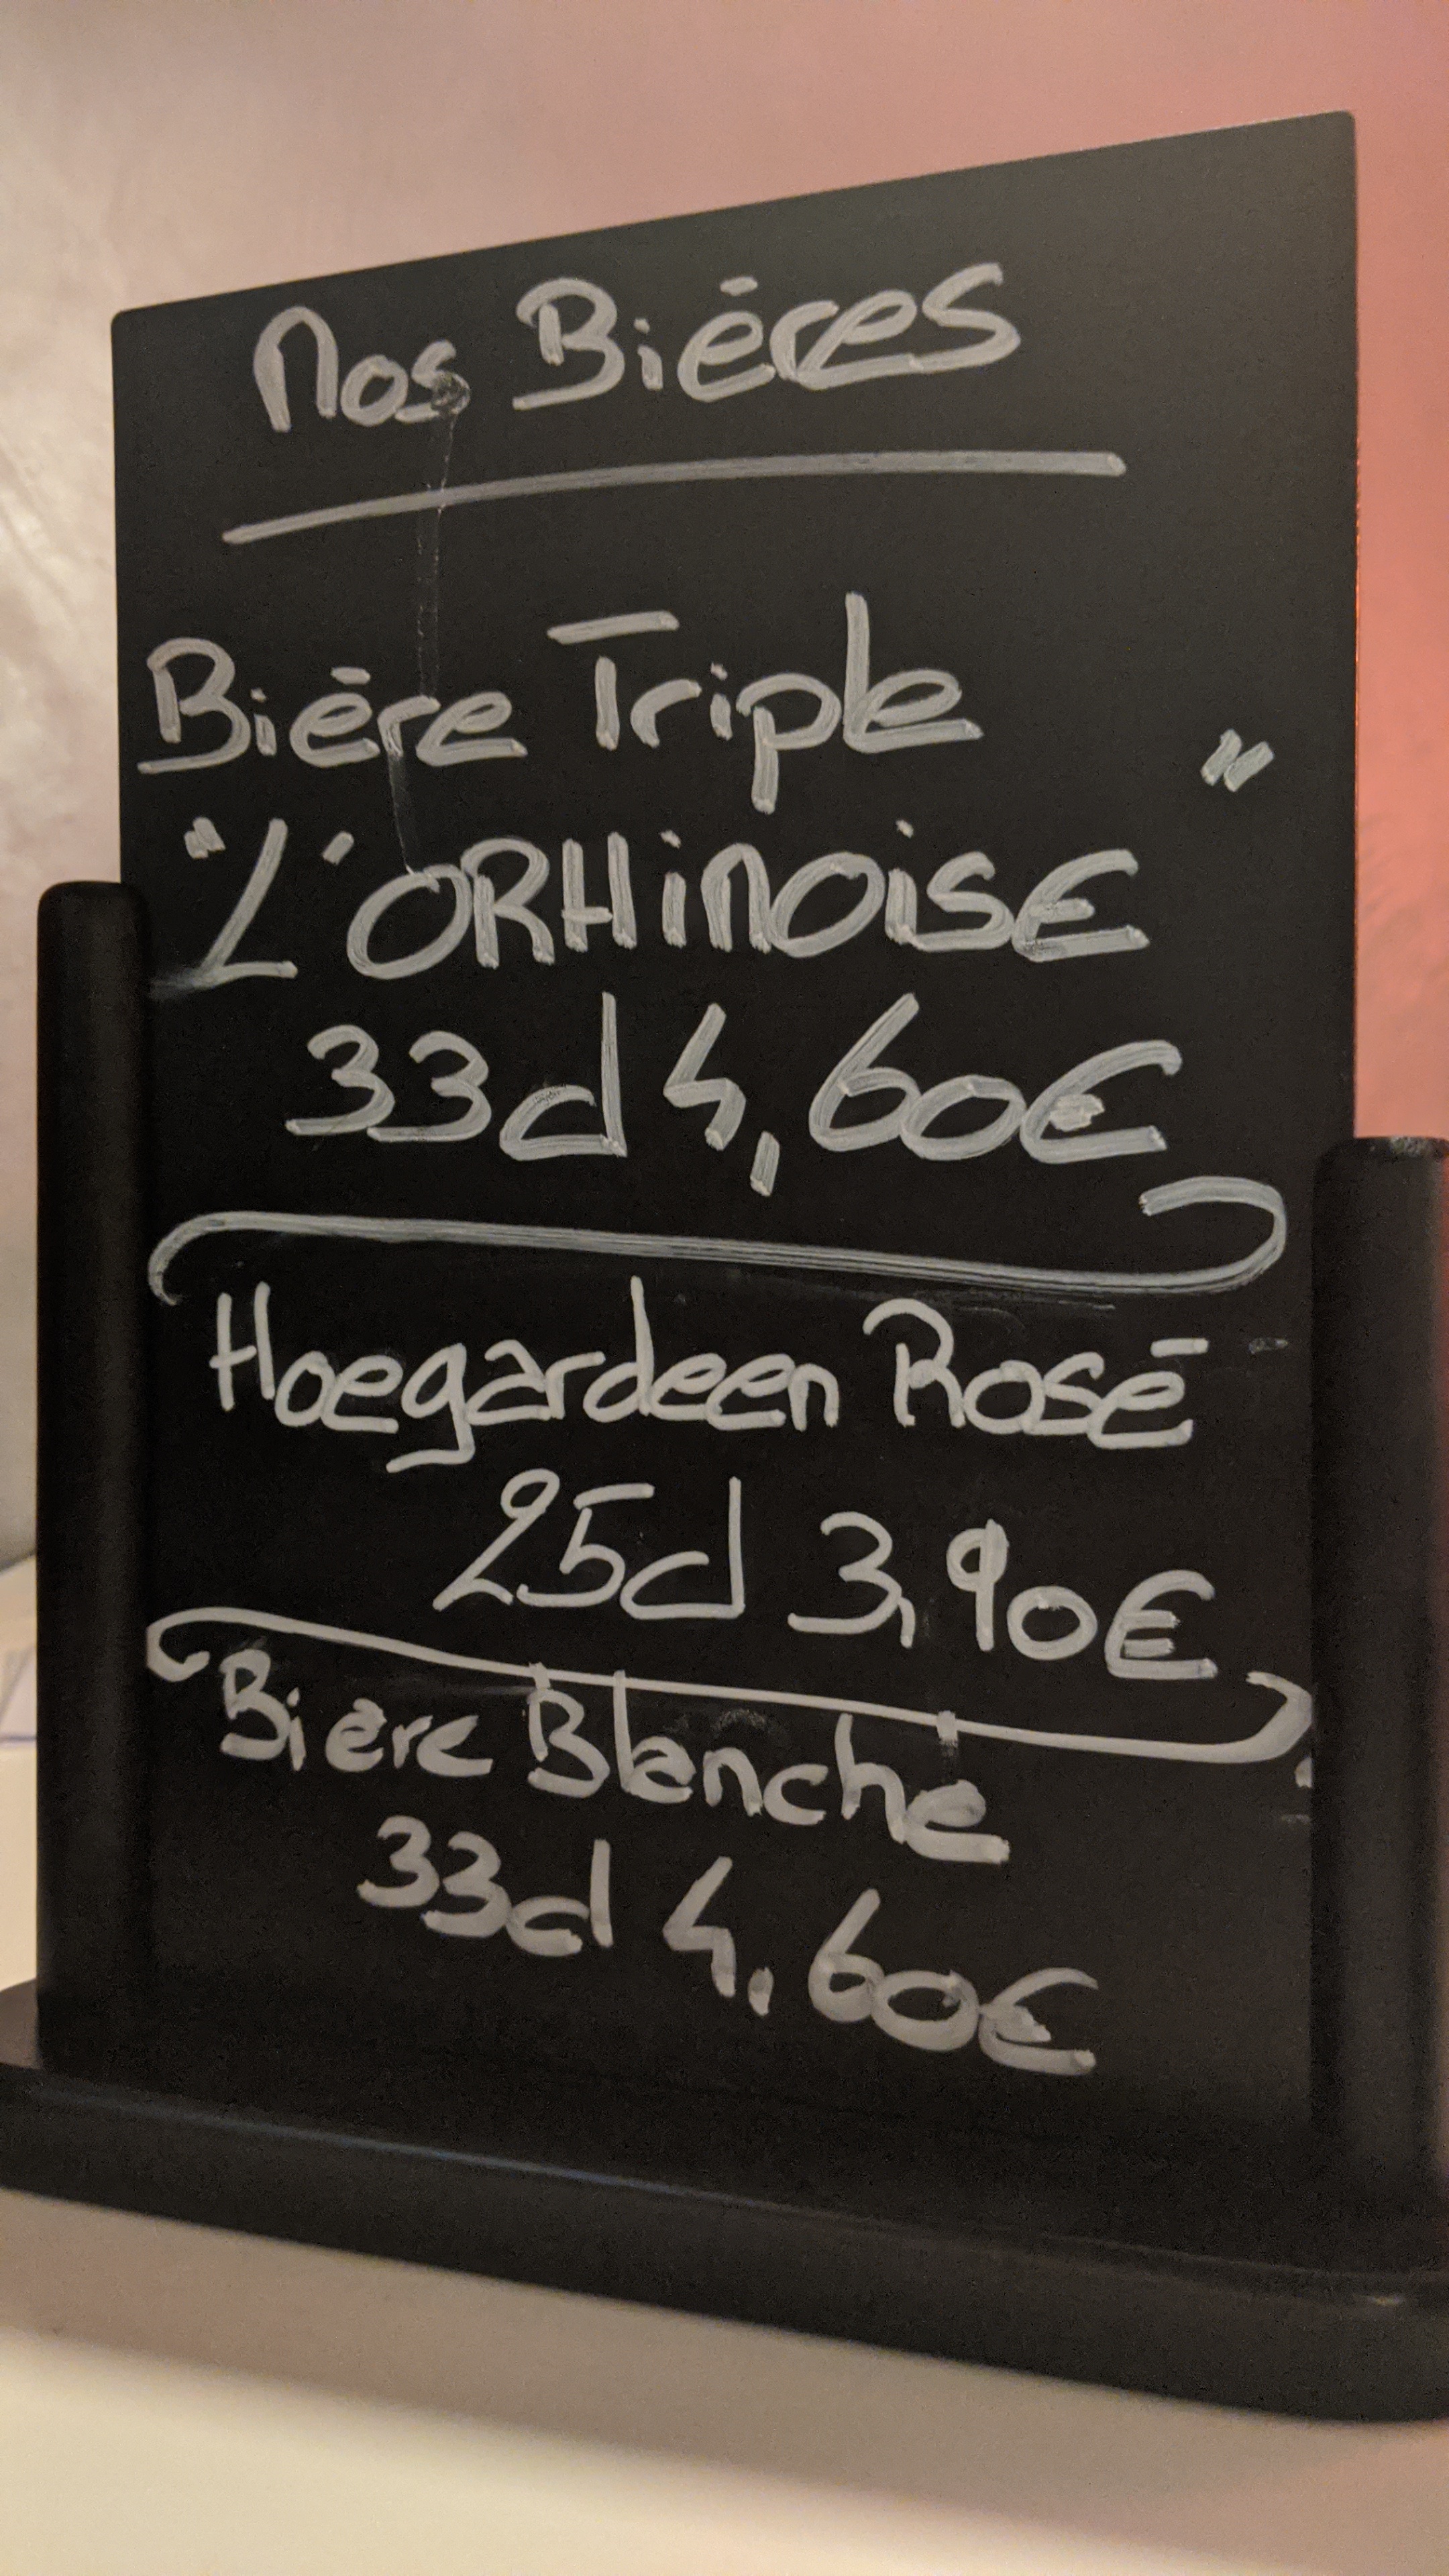 Nos Bières
Bière Triple
"L'ORHINOISE"
33cl 4,60€
Hoegardeen Rosé
25cl 3,90€
Bière Blanche
33cl 4,60€